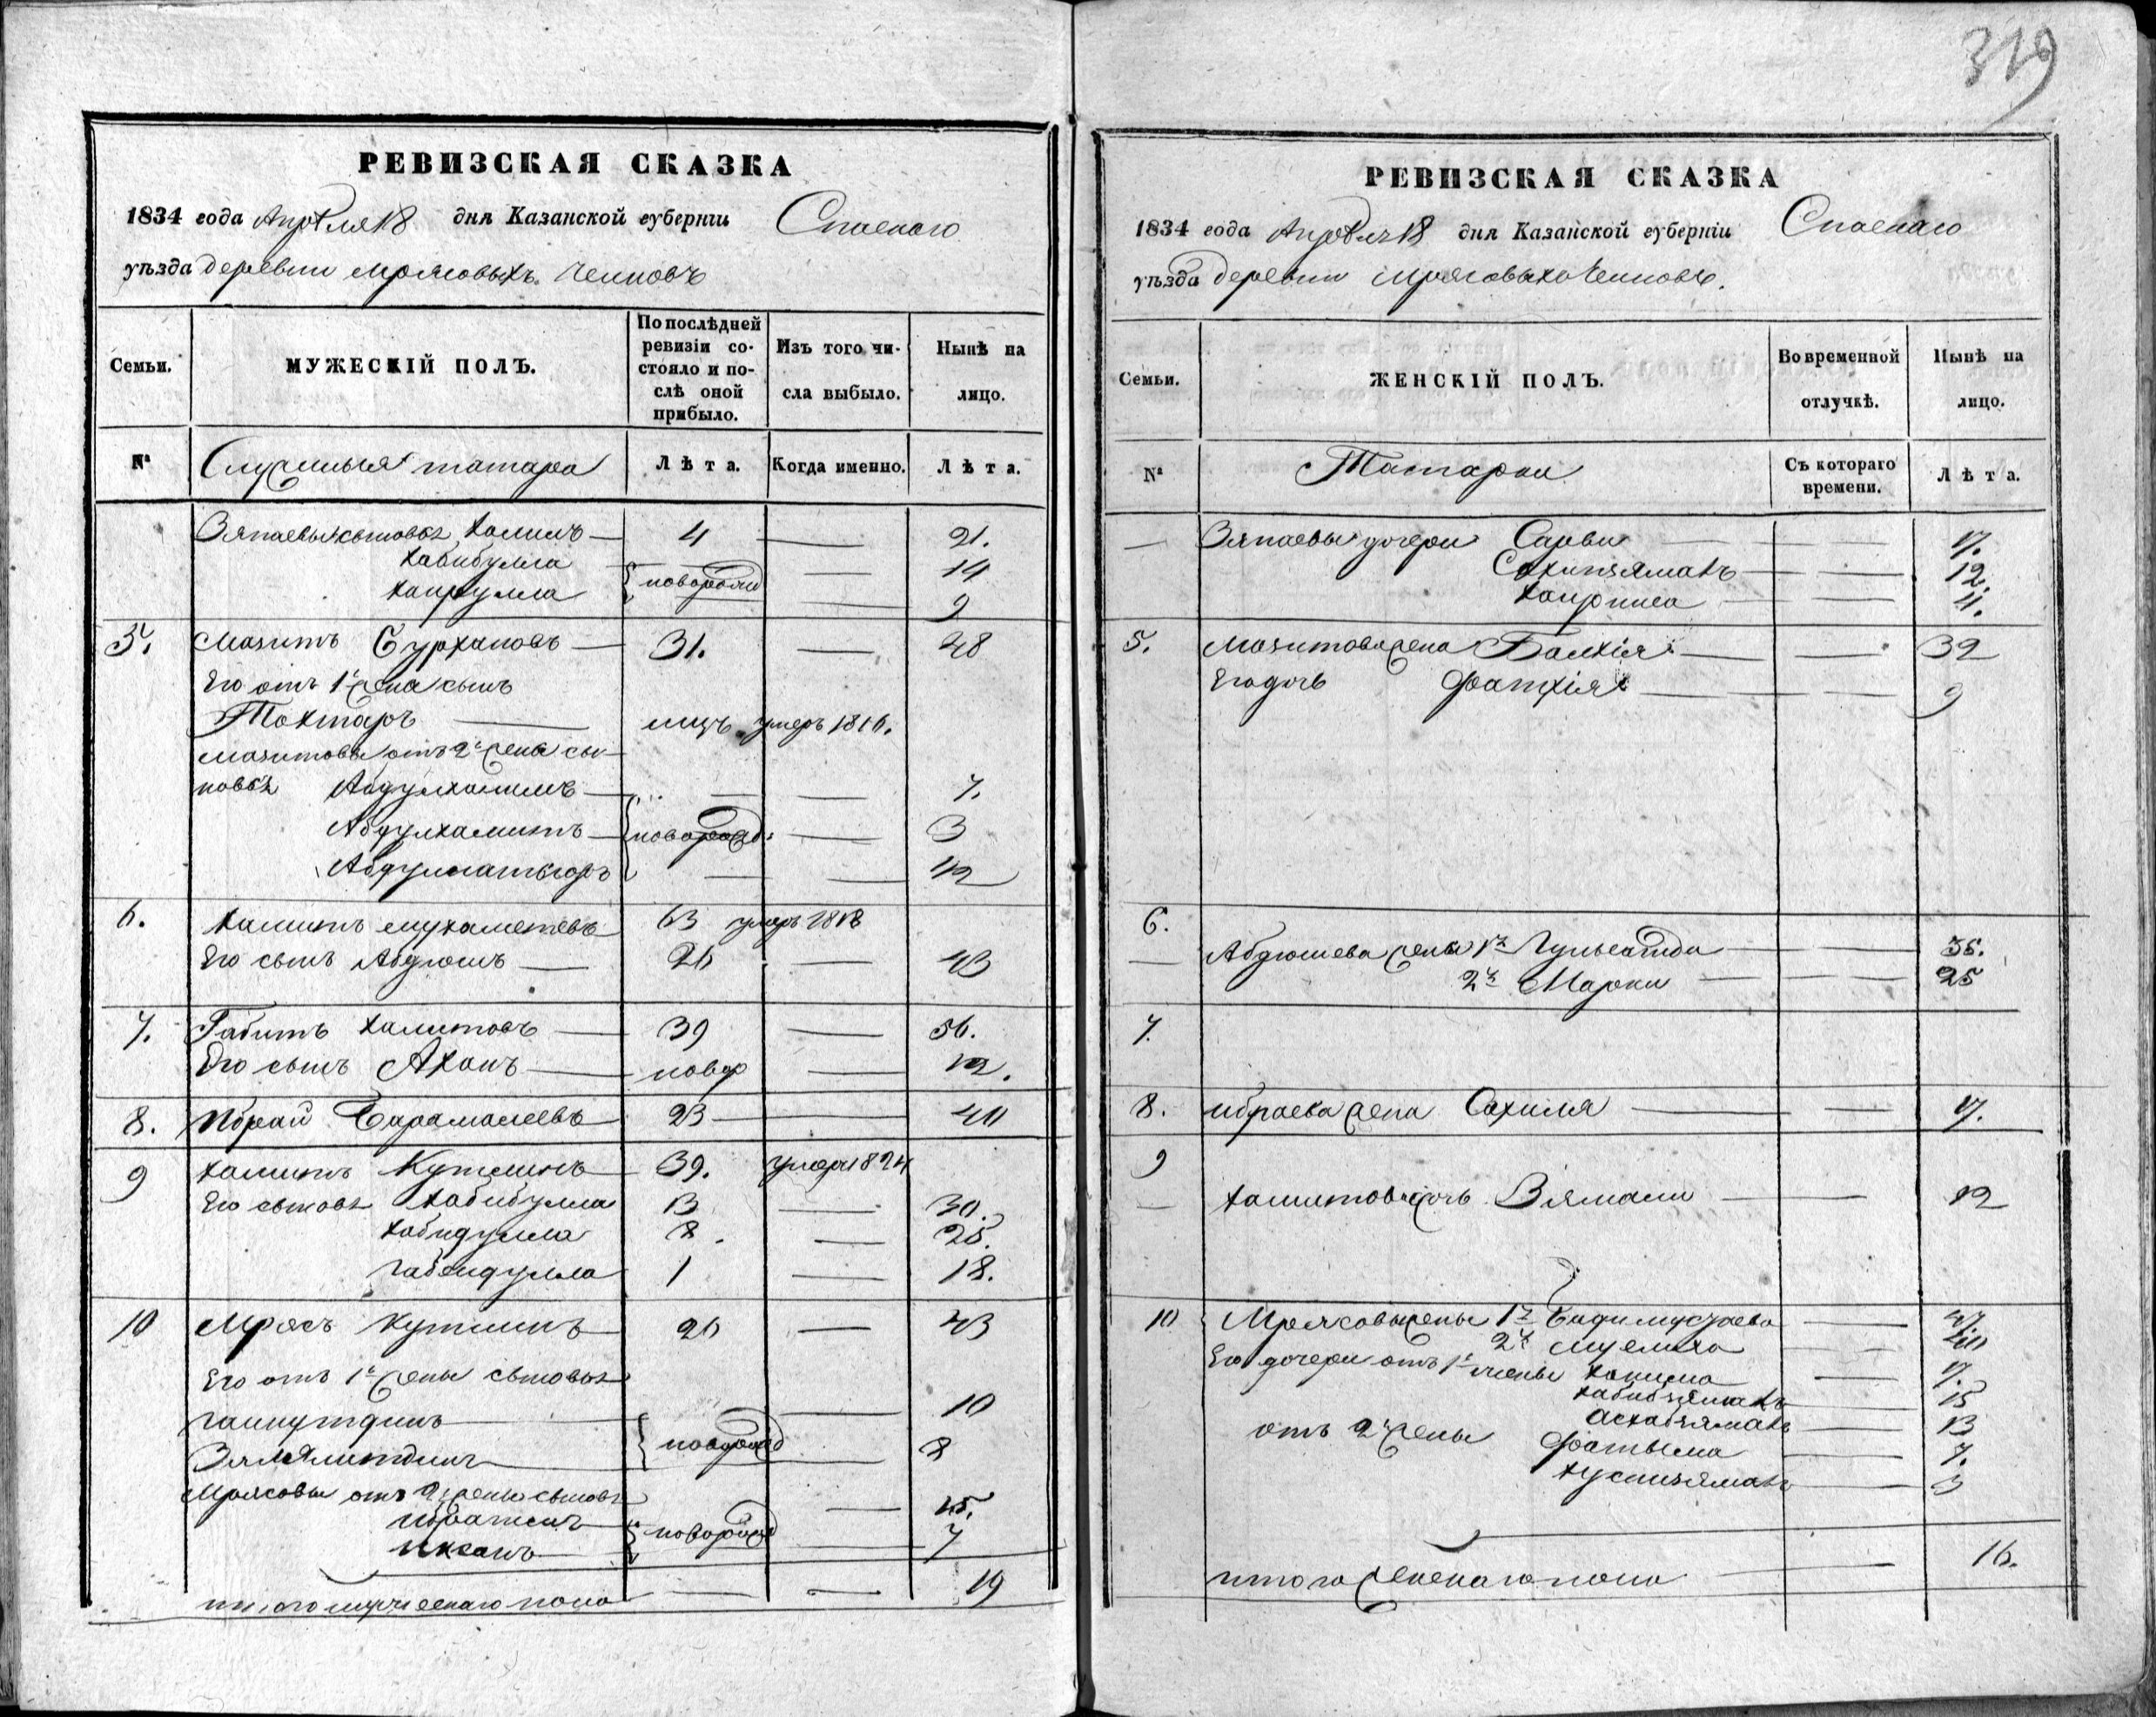 319
РЕВИЗСКАЯ СКАЗКА
1834 года Апреля 18 дня Казанской губерніи Спаскаго
уѣзда деревни Мрясовыхъ Челновъ
Семьи.
МУЖЕСКІЙ ПОЛЪ.
По послѣдней ревизіи состояло и послѣ оной прибыло.
Изъ того числа выбыло.
Нынѣ на лицо.
№
Служилыя татара
Лѣта.
Когда именно.
Лѣта.
Зяпаевы сыновья Халилъ 4 21.
Хабибулла 14
новорожд
Хайрулла 9
5. Мазитъ Бурхановъ 31. 48
Его отъ 1й жены сынъ
Тохтаръ умеръ 1816.
Мазитовы отъ 2й жены сы-
новья Абдулхалилъ 7.
Абдулхамитъ новорожд: 3
12
6. Хамитъ Мухаметевъ 63 умеръ 1818
Его сынъ Абдюшъ 26 43
7. Габитъ Халитовъ 39 56.
Его сынъ Ахунъ новор 12.
8. Ибрай Бараmалеевъ 23 40
9 Хамитъ Кутлинъ 39. умеръ 1824
Его сыновья Хабибулла 13 30.
Хабидулла 8. 25.
Габейдулла 1 18.
10 Мрясъ Кутлинъ 26 43
Его отъ 1й жены сыновья
Гайнутдинъ 10
новорожд
Зямялитдинъ 8
Мрясовы отъ 2й жены сыновья
Ибрагимъ 15.
новорожд
Иксанъ 7
итого мужескаго пола 19
РЕВИЗСКАЯ СКАЗКА
1834 года Апреля 18 дня Казанской губерніи Спаскаго
уѣзда деревни Мрясовыхъ Челновъ.
Семьи.
ЖЕНСКІЙ ПОЛЪ.
Во временной отлучкѣ.
Нынѣ на лицо.
№
Татарки
Съ котораго времени.
Лѣта.
Зяпаевы дочери Сарви 17.
Сахипзямалъ 12.
Хайрниса 11.
5. Мазитова жена Балхія 32
Его дочь Фатхія 9
6.
Абдюшева жена 1я Гульсатда 36.
2я Марки 25
7.
8. Ибраева жена Сахиля 17.
9
Хамитова дочь Зямали 12
10 Мрясовы жены 1я 47
2я 40
Его дочери отъ 1й жены Халима 17.
Хабибзямалъ 15
Асхабзямалъ 13
отъ 2й жены Фатыма 7.
Хуснизямалъ 3
итого женскаго пола 16.